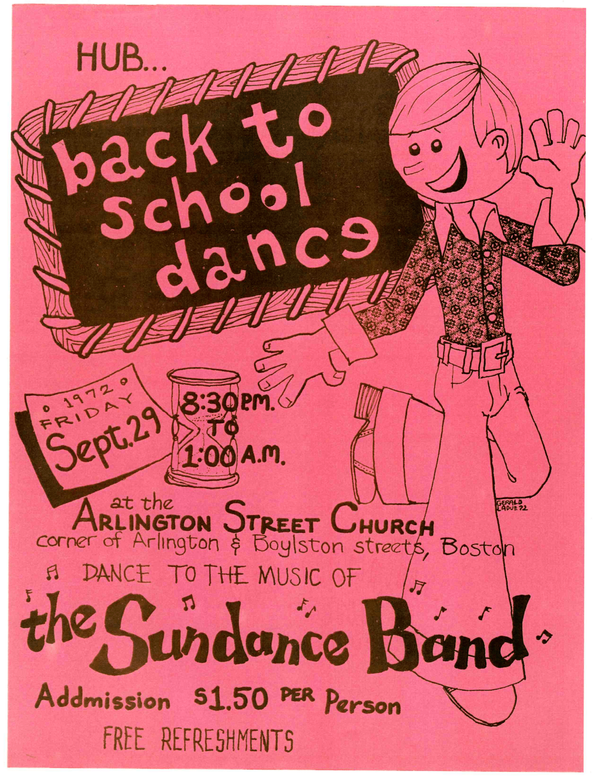 HUB...
back to
school
dance
• 1972 •
FRIDAY
Sept. 29
8:30 P.M.
TO
1:00 A.M.
at the
ARLINGTON STREET CHURCH
corner of Arlington & Boylston streets, Boston
DANCE TO THE MUSIC OF
the Sundance Band
Addmission $1.50 PER Person
FREE REFRESHMENTS
GERALD